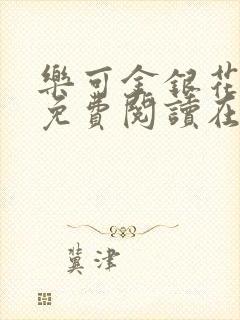 樂可金銀花
免費閱讀在
冀津